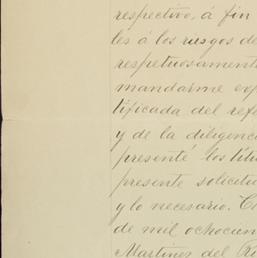 respectivo, á fin
les á los riesgos de
respetuosament
mandarme exp
tificada del refe
y de la diligenc
presenté los títu
presente solicitu
y lo necesario. Ci
de mil ochocien
Martinez del Rio